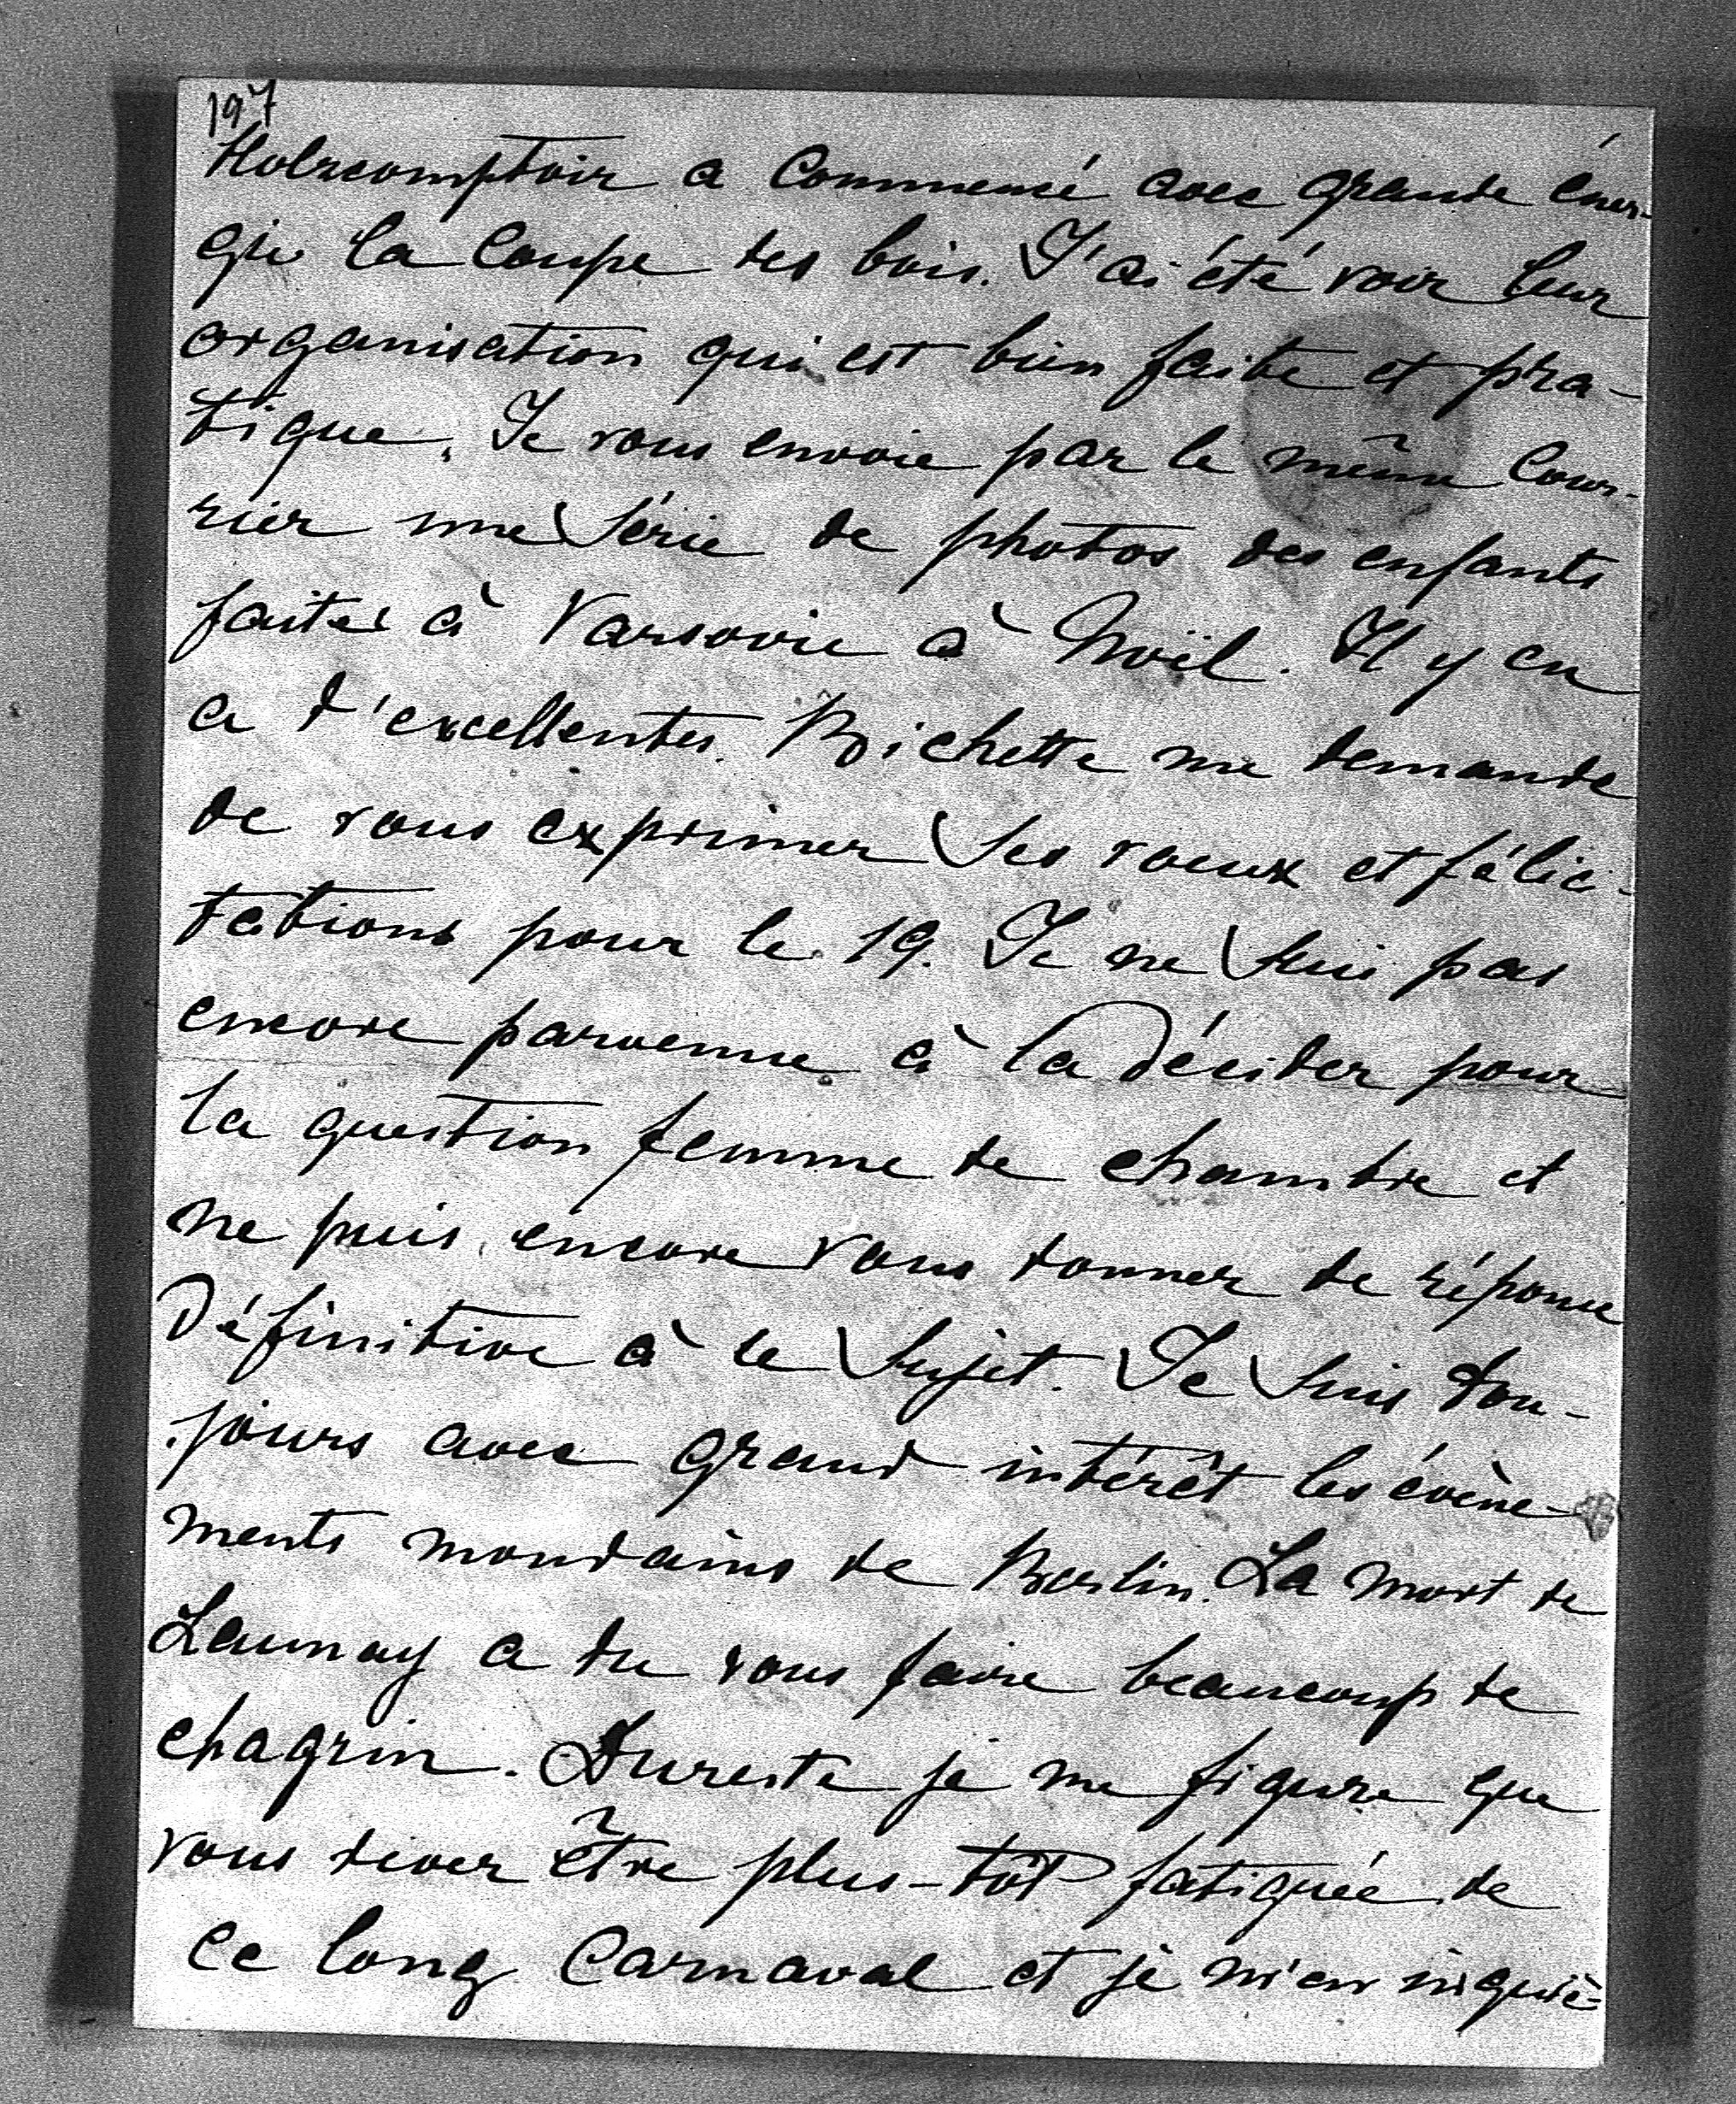 197
Holzcomptoir a commencé avec grande éner-
gie la coupe des bois. J'ai été voir leur
organisation qui est bien faite et pra-
tique. Je vous envoie par le même cour-
rier une série de photos des enfants
faites à Varsovie à Noël. Il y en
a d'excellentes. Bichette me demande
de vous exprimer ses voeux et félici-
tations pour le 19. Je ne suis pas
encore parvenue à la décider pour
la question femme de chambre et
ne puis encore vous donner de réponse
définitive à ce sujet. Je suis tou-
jours avec grand intérêt les évène-
ments mondains de Berlin. La mort de
Launay a du vous faire beaucoup de
chagrin. Dureste je me figure que
vous devez être plus-tôt fatiguée de
ce long Carnaval et je m'en inquiè-